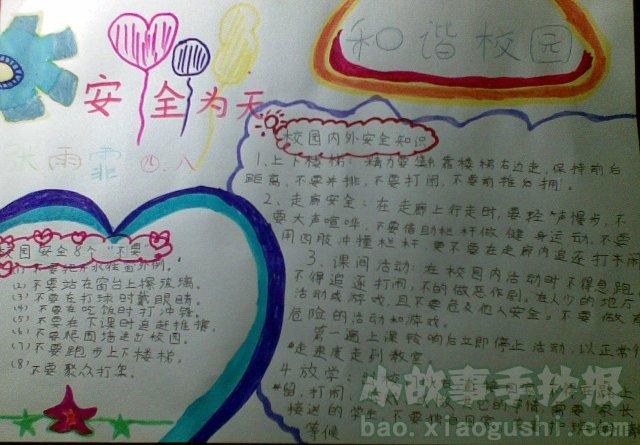 和谐校园
安全为天
雨霏 四.八
校园内外安全知识
1.上下楼梯:精力要集中靠楼梯右边走,保持前后
距离,不要并排,不要打闹,不要前推后拥。
2、走廊安全:在走廊上行走时,要轻声慢步,不
要大声喧哗,不要借助栏杆做健身运动,不要
用四肢冲撞栏杆 更不要在走廊内追逐打闹
3.课间活动:在校园内活动时不得急跑
不得追逐打闹,不的做恶作剧。在人少的地方
活动或游戏,且不要危及他人安全。不要做有
危险的活动和游戏。
第一遍上课铃响后立即停止活动,以正常行
走速度走到教室
4 放学:
留,打闹,
接送的学生,不要
等候
校园安全8个"不要"
(2)不要站在窗台上擦玻璃。
(3)不要在打球时戴眼睛。
(4)不要在吃饭时打冲锋。
(5)不要在下课时追赶推搡。
(6)不要爬围墙进出校园。
(7)不要跑步上下楼梯。
(8)不要聚众打架。
小故事手抄报
bao.xiaogushi.com